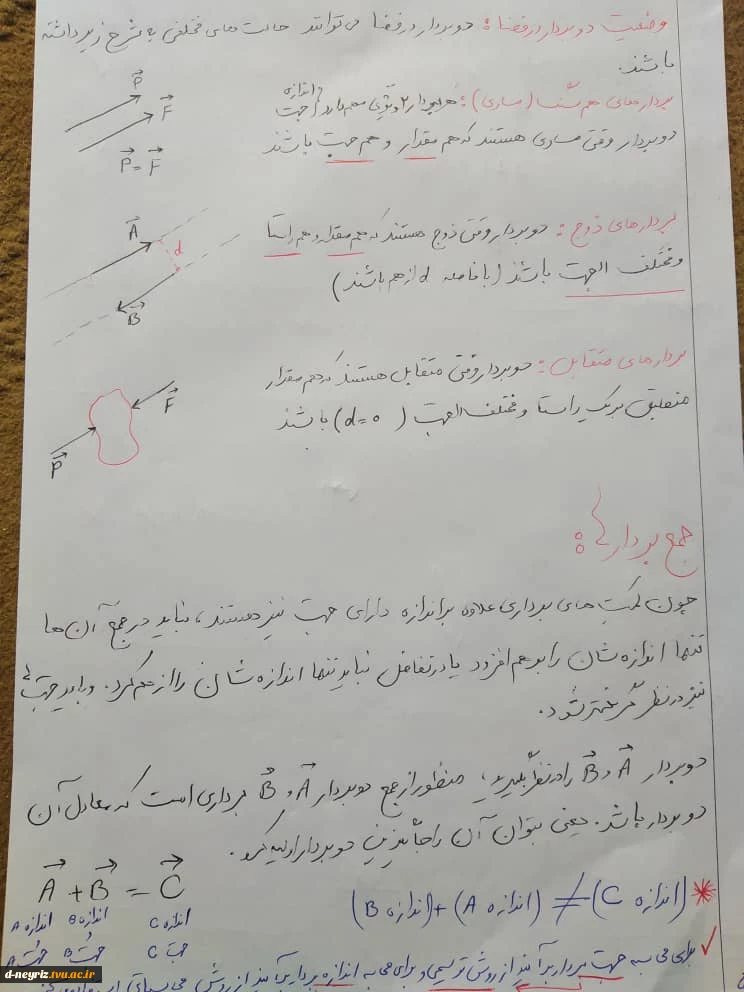 وضعیت دو بردار در فضا: دو بردار در فضا می توانند حالت های مختلفی به شرح زیر داشته
باشند.
بردارهای هم سنگ (مساوی): هر بردار ۲ ویژگی مهم دارد اندازه
جهت
دو بردار وقتی مساوی هستند که هم مقدار و هم جهت باشند
P
F
P = F
بردارهای زوج: دو بردار وقتی زوج هستند که هم مقدار و هم راستا
و مختلف الجهت باشند (با فاصله d از هم باشند)
A
d
B
بردارهای متقابل: دو بردار وقتی متقابل هستند که هم مقدار
منطبق بر یک راستا و مختلف الجهت (d=0) باشند
F
P
جمع بردارها:
چون کمیت های برداری علاوه بر اندازه دارای جهت نیز هستند، نباید در جمع آن ها
تنها اندازه شان را بر هم افزود یا در تفاضل نباید تنها اندازه شان را از هم کم کرد. و باید جهت ها
نیز در نظر گرفته شود.
دو بردار A و B را در نظر بگیرید، منظور از جمع دو بردار A و B برداری است که معادل آن
دو بردار باشد. یعنی بتوان آن را جایگزین دو بردار اولیه کرد.
A + B = C
اندازه A اندازه B اندازه C
جهت A جهت B جهت C
* (اندازه C) ≠ (اندازه A) + (اندازه B)
✓ برای جهت بردار برآیند از روش ترسیمی و برای اندازه بردار برآیند از روش
d-neyriz.tvu.ac.ir